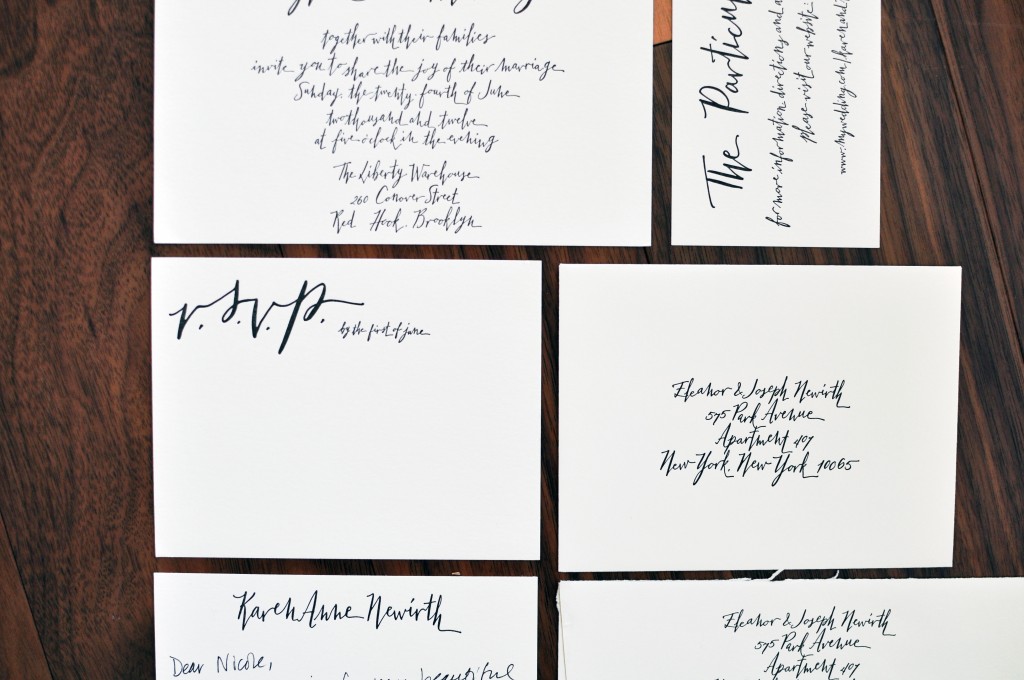 together with their families
invite you to share the joy of their marriage
Sunday, the twenty-fourth of June
two thousand and twelve
at five o'clock in the evening
The Liberty Warehouse
260 Conover Street
Red Hook, Brooklyn
The Particu
for more information, directions and a
please visit our website:
www.mywedding.com/karenand
r.s.v.p.
by the first of june
Eleanor & Joseph Newirth
575 Park Avenue
Apartment 407
New York, New York 10065
Karen Anne Newirth
Dear Nicole,
beautiful
Eleanor & Joseph Newirth
575 Park Avenue
Apartment 407